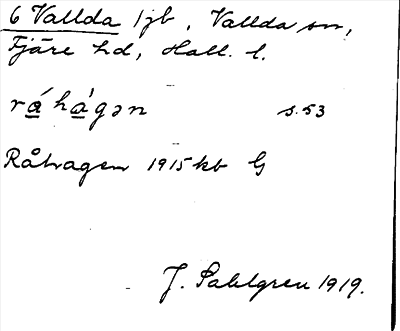 6 Vallda 1 jb, Vallda sn,
Fjäre hd, Hall. l.
rá̲hà̲gən s. 53
Råhagen 1915 kb G
J. Sahlgren 1919.